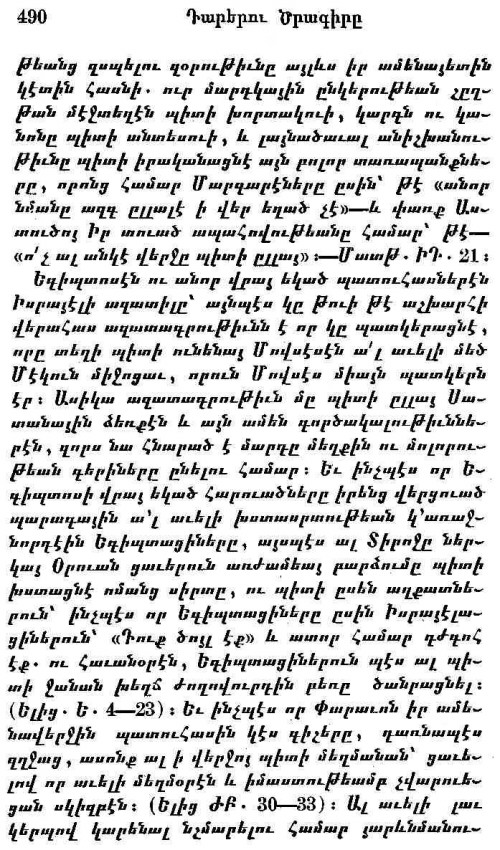 490 Դարերու Ծրագիրը
թեանց զսպելու զօրութիւնը այլևս իր ամենայետին
կէտին հասնի. ուր մարդկային ընկերութեան չըղ-
թան մէջտեղէն պիտի խորտակուի, կարգն ու կա-
նոնը պիտի անտեսուի, և լայնածաւալ անիշխանու-
թիւնը պիտի իրականացնէ այն բոլոր տառապանքնե-
րը, որոնց համար Մարգարէները ըսին՝ թէ «անոր
նմանը ազգ ըլլալէ ի վեր եղած չէ»—և փառք Աս-
տուծոյ Իր տուած ապահովութեանը համար՝ թէ—
«ո՛չ ալ անկէ վերջը պիտի ըլլայ»։—Մատթ. ԻԴ. 21։
Եգիպտոսէն ու անոր վրայ եկած պատուհասներէն
Իսրայէլի ազատիլը՝ այնպէս կը թուի թէ աշխարհի
վերահաս ազատագրութիւնն է որ կը պատկերացնէ,
որը տեղի պիտի ունենայ Մովսէսէն ա՛լ աւելի մեծ
Մէկուն միջոցաւ, որուն Մովսէս միայն պատկերն
էր։ Ասիկա ազատագրութիւն մը պիտի ըլլայ Սա-
տանային ձեռքէն և այն ամեն գործակալութիւննե-
րէն, զորս նա հնարած է մարդը մեղքին ու մոլորու-
թեան գերիները ընելու համար։ Եւ ինչպէս որ Ե-
գիպտոսի վրայ եկած հարուածները իրենց վերցուած
պարագային ա՛լ աւելի խստասրտութեան կ՚առաջ-
նորդէին Եգիպտացիները, այսպէս ալ Տիրոջը ներ-
կայ Օրուան ցաւերուն առժամեայ բարձումը պիտի
խստացնէ ոմանց սիրտը, ու պիտի ըսեն աղքատնե-
րուն՝ ինչպէս որ Եգիպտացիները ըսին Իսրայէլա-
ցիներուն՝ «Դուք ծոյլ էք» և ատոր համար դժգոհ
էք. ու հաւանօրէն, Եգիպտացիներուն պէս ալ պի-
տի ջանան խեղճ ժողովուրդին բեռը ծանրացնել։
(Ելից. Ե. 4—23)։ Եւ ինչպէս որ Փարաւոն իր ամե-
նավերջին պատուհասին կէս գիշերը, դառնապէս
զղջաց, ասոնք ալ ի վերջոյ պիտի մեղմանան՝ ցաւե-
լով որ աւելի մեղմօրէն և իմաստութեամբ չվարուե-
ցան սկիզբէն։ (Ելից ԺԲ. 30—33)։ Ալ աւելի լաւ
կերպով կարենալ նշմարելու համար յարևնմանու-